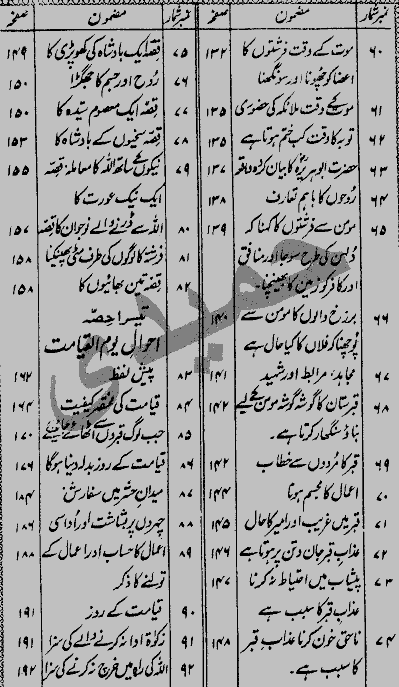 نمبرشمار مضمون صفحہ
۶۰ موت کے وقت فرشتوں کا ۱۳۲
اعضا کو چھونا اور سونگھنا
۶۱ موت کے وقت ملائکہ کی حضوری ۱۳۵
۶۲ توبہ کا وقت کب ختم ہوتا ہے ۱۳۵
۶۳ حضرت ابوہریرہؓ کا بیان کردہ واقعہ ۱۳۷
۶۴ روحوں کا باہم تعارف ۱۳۸
۶۵ مومن سے فرشتوں کا کہنا کہ ۱۳۹
دلہن کی طرح سو جا اور منافق
اور کافر کو زمین کا بھینچنا۔
۶۶ برزخ والوں کا مومن سے ۱۴۰
پوچھنا کہ فلاں کا کیا حال ہے
۶۷ مجاہد، مرابط اور شہید ۱۴۱
۶۸ قبرستان کا گوشہ گوشہ مومن کے لیے ۱۴۲
بناؤ سنگھار کرتا ہے۔
۶۹ قبر کا مردوں سے خطاب ۱۴۲
۷۰ اعمال کا مجسم ہونا ۱۴۴
۷۱ قبر میں غریب اور امیر کا حال ۱۴۵
۷۲ عذاب قبر جان و تن پر ہوتا ہے ۱۴۶
۷۳ پیشاب میں احتیاط نہ کرنا ۱۴۷
عذاب قبر کا سبب ہے
۷۴ ناحق خون کرنا عذاب قبر ۱۴۸
کا سبب ہے۔
نمبرشمار مضمون صفحہ
۷۵ قصہ ایک بادشاہ کی کھوپڑی کا ۱۴۹
۷۶ روح اور جسم کا جھگڑا ۱۵۰
۷۷ قصہ ایک معصوم سیدہ کا ۱۵۰
۷۸ قصہ سخیوں کے بادشاہ کا ۱۵۳
۷۹ نیکوں کے ساتھ اللہ کا معاملہ: قصہ ۱۵۵
ایک نیک عورت کا
۸۰ اللہ سے ڈرنے والے نوجوان کا قصہ ۱۵۷
۸۱ فرشتہ کا لوگوں کی طرف مٹی پھینکنا ۱۵۸
۸۲ قصہ تین بھائیوں کا ۱۵۸
تیسرا حصہ
احوال یوم القیامت
۸۳ پیش لفظ ۱۶۲
۸۴ قیامت کی مختصر کیفیت ۱۶۴
۸۵ جب لوگ قبروں سے اٹھائے جائیں گے ۱۷۰
۸۶ قیامت کے روز بدلہ دینا ہوگا ۱۷۶
۸۷ میدان حشر میں سفارش ۱۸۴
۸۸ چہروں پر بشاشت اور اداسی ۱۸۶
۸۹ اعمال کا حساب اور اعمال کے ۱۸۸
تولنے کا ذکر
۹۰ قیامت کے روز ۱۹۱
۹۱ زکوٰۃ ادا نہ کرنے والے کی سزا ۱۹۱
۹۲ اللہ کی راہ میں خرچ نہ کرنے کی سزا ۱۹۲
حمیدی